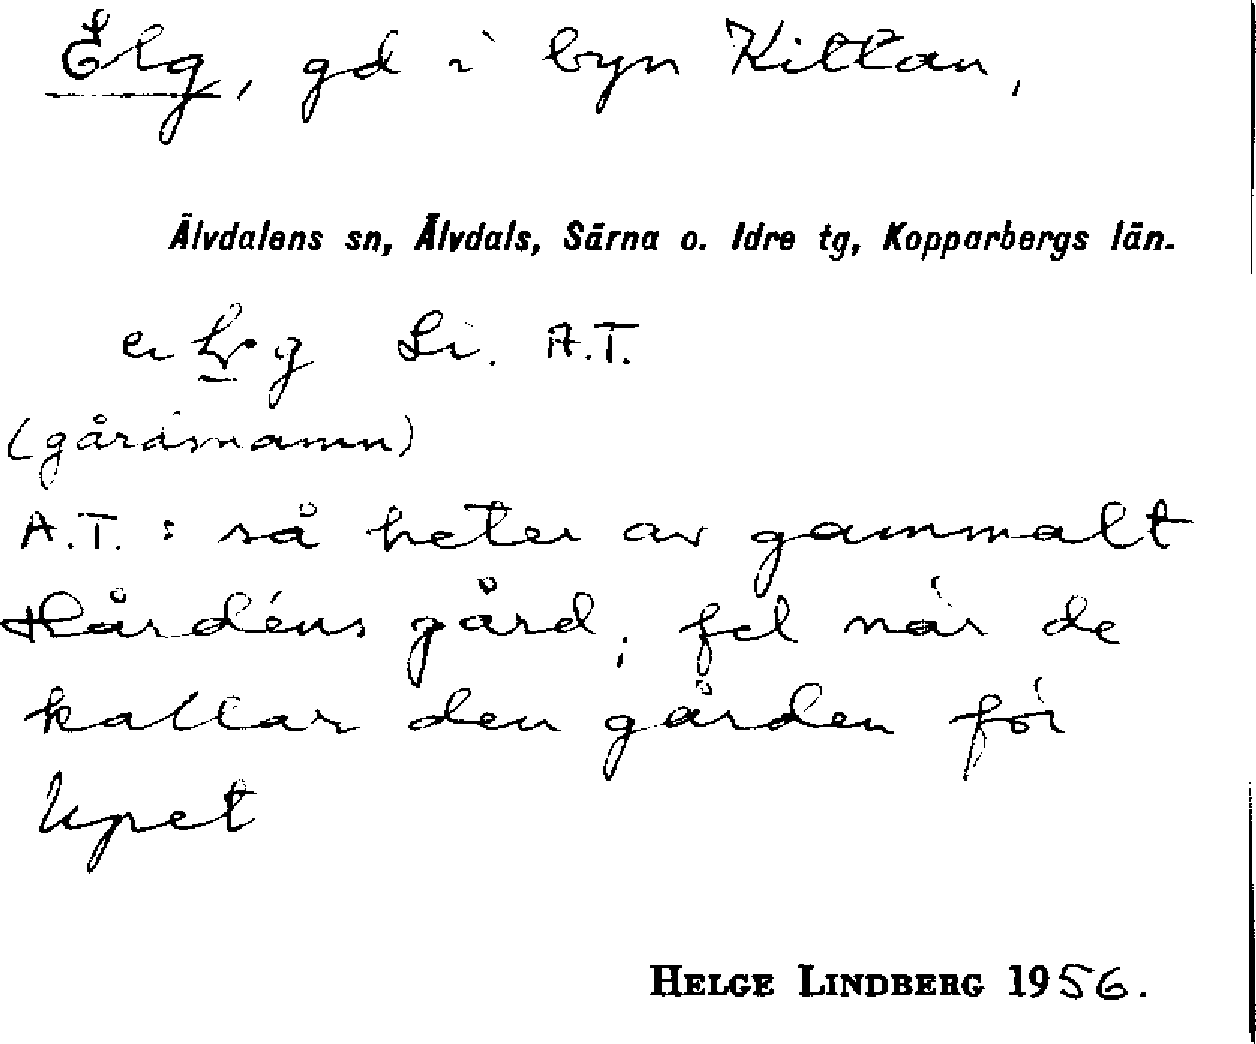 Elg, gd i byn Kittan,
Älvdalens sn, Älvdals, Särna o. Idre tg, Kopparbergs län.
Li. A.T.
(gårdsnamn)
A.T. : så heter av gammalt
Hårdéns gård; fel när de
kallar den gården för
HELGE LINDBERG 1956.